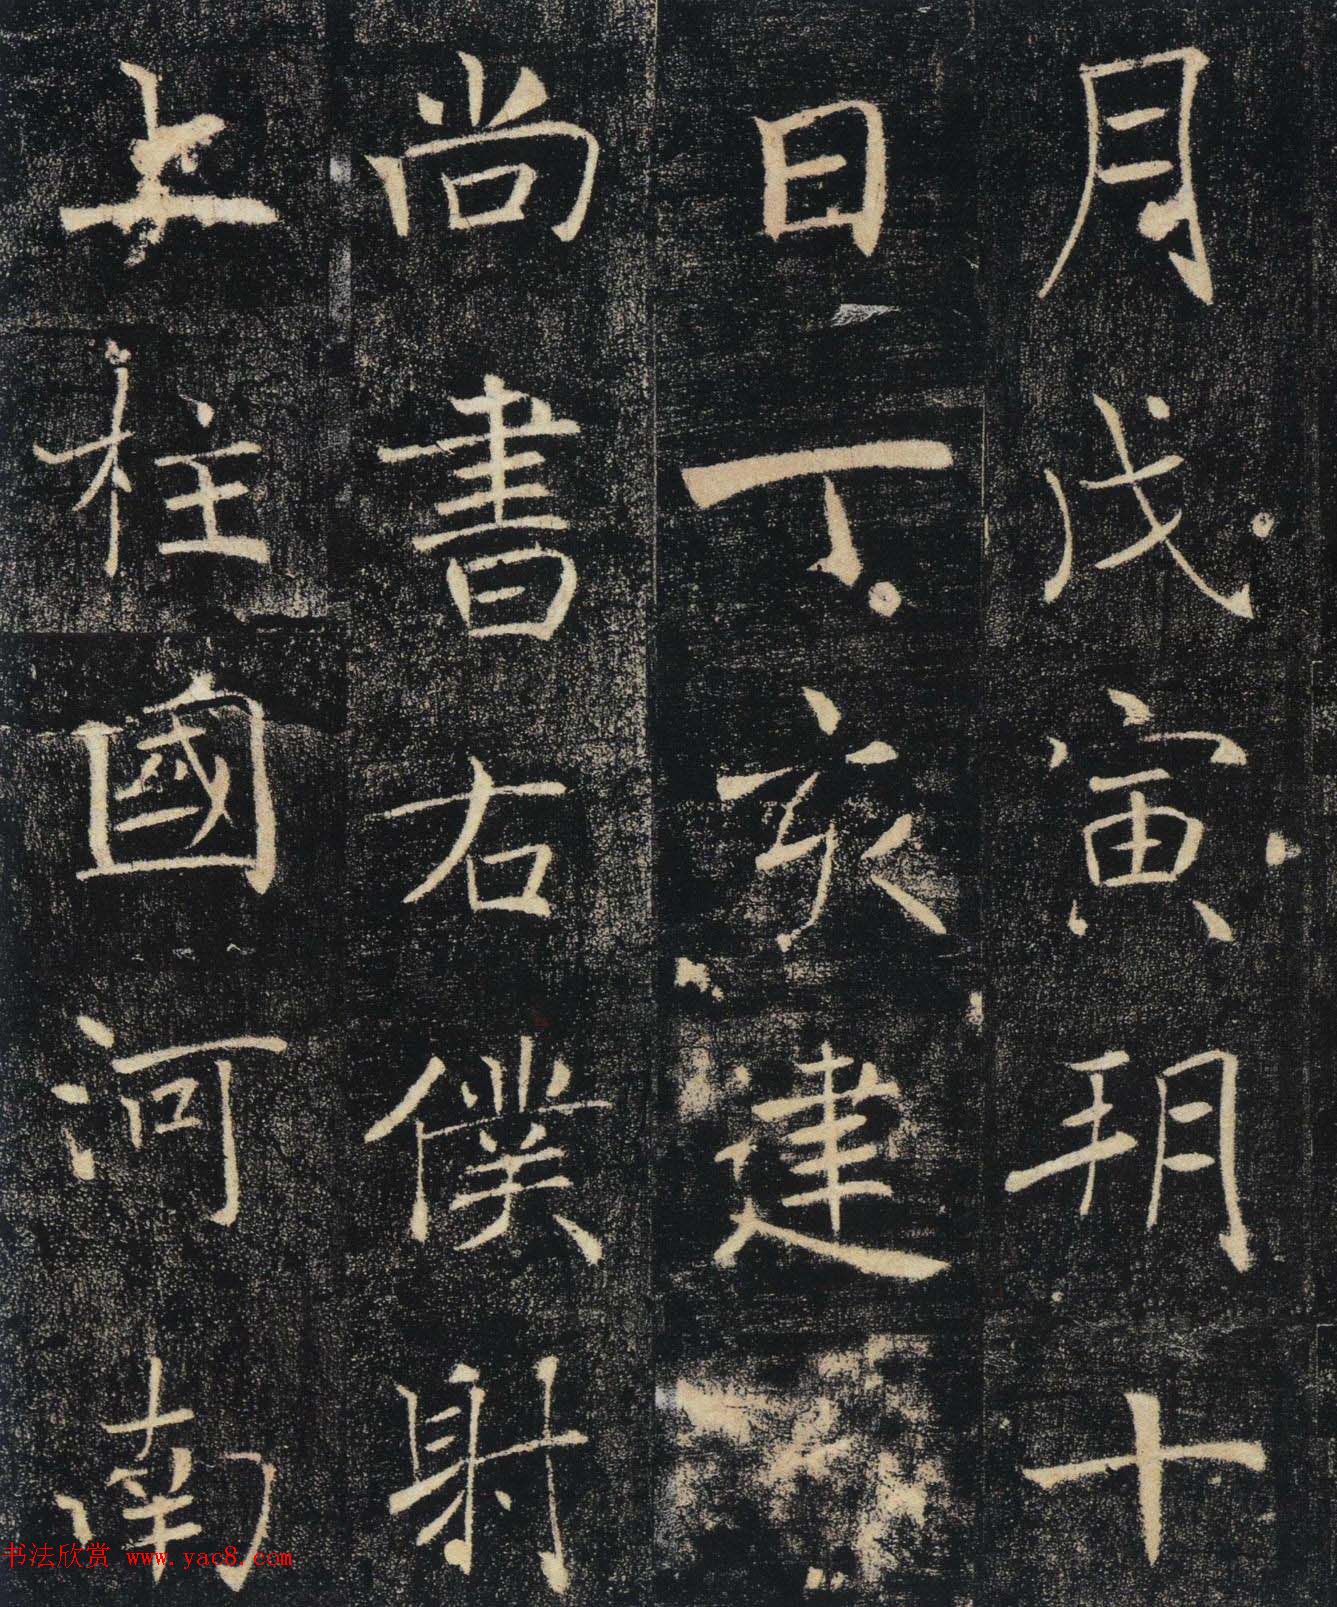 月戊寅朔十
日丁亥建
尚書右僕射
上柱國河南
书法欣赏 www.yac8.com